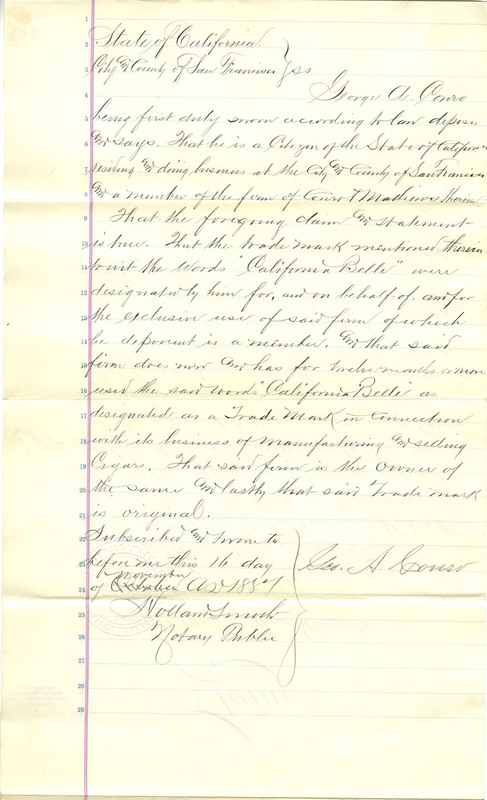 1
2 State of California
3 City and County of San Francisco } SS
4 George A. Conro
5 being first duly sworn according to law deposes
6 and says. That he is a Citizen of the State of California
7 residing and doing business at the City and County of San Francisco
8 and a member of the firm of Conro & Mathews Therein
9 That the foregoing claim and statement
10 is true. That the trade mark mentioned therein
11 to wit the Words "California Belle" were
12 designated by him for, and on behalf of and for
13 the exclusive use of said firm of which
14 he deponent is a member. and that said
15 firm does now and has for twelve months & more
16 used the said words "California Belle" as
17 designated as a Trade Mark in connection
18 with its business of manufacturing and selling
19 Cigars. That said firm is the owner of
20 the same and lastly that said Trade mark
21 is original.
22 Subscribed and sworn to
23 before me this 16 day
November
24 of October AD 188
Geo. A. Conro
25 Holland Smith
26 Notary Public
27
28
29